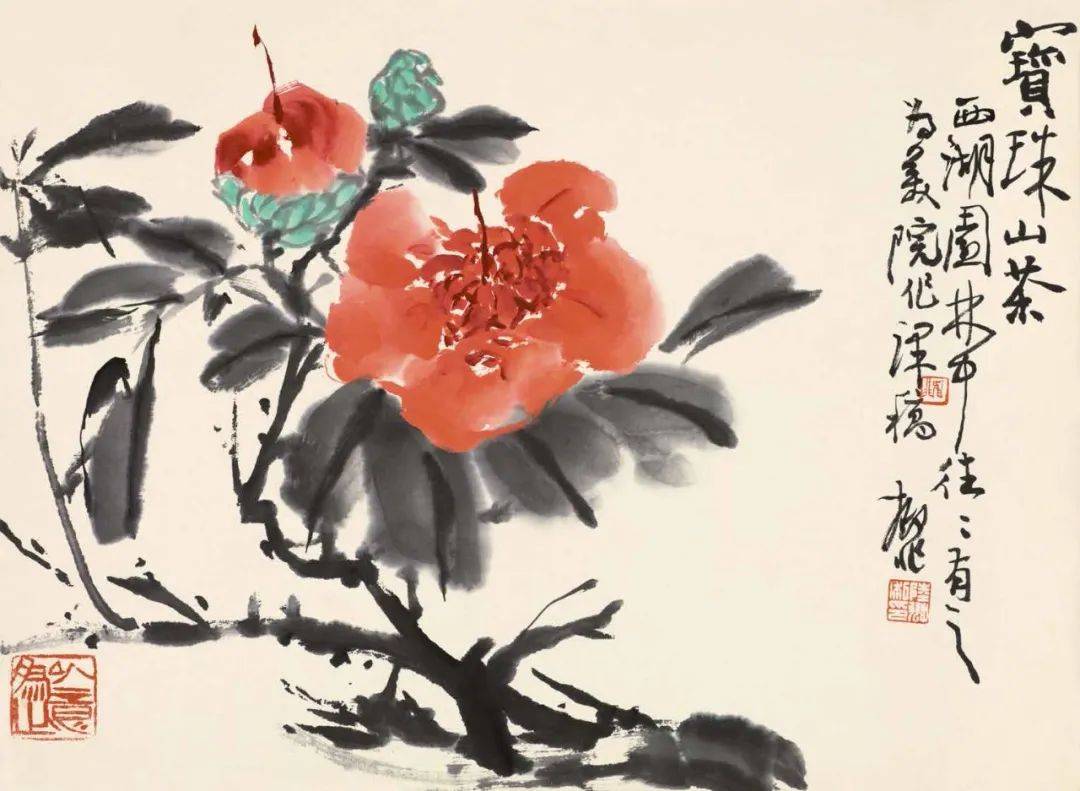 寶珠山茶
西湖園林中往〻有之
为美院作課稿 抑非